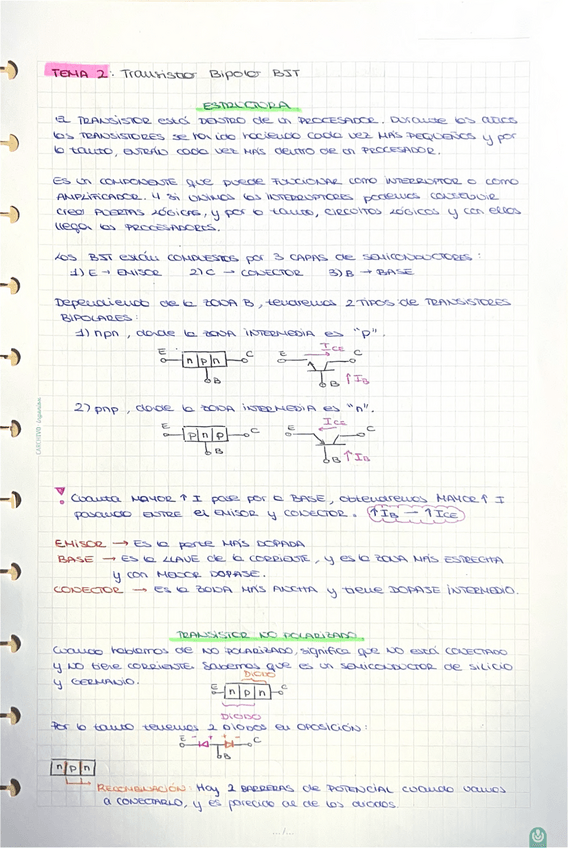 TEMA 2: Transistor Bipolar BJT
ESTRUCTURA
EL TRANSISTOR está DENTRO de un PROCESADOR. Durante los años
los TRANSISTORES se han ido haciendo cada vez MÁS PEQUEÑOS y por
lo tanto, ENTRAN cada vez MÁS dentro de un PROCESADOR.
Es un COMPONENTE que puede FUNCIONAR como INTERRUPTOR o como
AMPLIFICADOR. Y si UNIMOS los INTERRUPTORES podemos CONSEGUIR
crear PUERTAS LÓGICAS, y por lo tanto, circuitos lógicos y con ellos
llegan los PROCESADORES.
Los BJT están COMPUESTOS por 3 CAPAS de SEMICONDUCTORES:
1) E → EMISOR 2) C → COLECTOR 3) B → BASE
Dependiendo de la ZONA B, tendremos 2 TIPOS de TRANSISTORES
BIPOLARES:
1) npn, donde la ZONA INTERMEDIA es "p".
E n p n C B
E I CE C B ↑ I B
2) pnp, donde la ZONA INTERMEDIA es "n".
E p n p C B
E I CE C B ↑ I B
CARCHIVO
! Cuanta MAYOR ↑ I pase por la BASE, obtendremos MAYOR ↑ I
pasando ENTRE el EMISOR y COLECTOR. ↑ I B — ↑ I CE
EMISOR → Es la parte MÁS DOPADA
BASE → Es la LLAVE de la CORRIENTE, y es la ZONA MÁS ESTRECHA
y con MENOR DOPAJE.
COLECTOR → es la ZONA MÁS ANCHA y tiene DOPAJE INTERMEDIO.
TRANSISTOR NO POLARIZADO
Cuando hablamos de NO POLARIZADO, significa que NO está CONECTADO
y NO tiene CORRIENTE. Sabemos que es un SEMICONDUCTOR de SILICIO
y GERMANIO.
DIODO
E n p n C
B
DIODO
Por lo tanto tenemos 2 DIODOS en OPOSICIÓN:
E - + + - C
B
n p n
RECOMBINACIÓN: Hay 2 BARRERAS de POTENCIAL cuando vamos
a CONECTARLO, y es parecido al de los diodos.
.../...